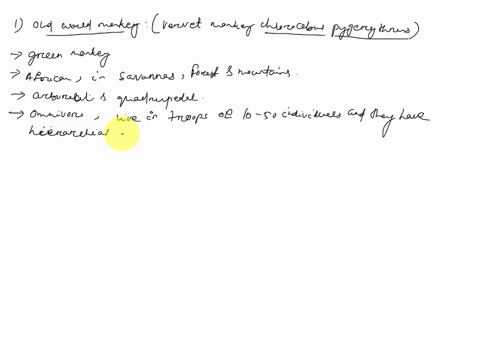 1) Old world monkey : (vervet monkey chlorocebus pygerythrus)
→ green monkey
→ African, in savannas, forest & mountains.
→ arboreal & quadrupedal.
→ Omnivore, live in troops of 10-50 individuals and they have
hierarchial